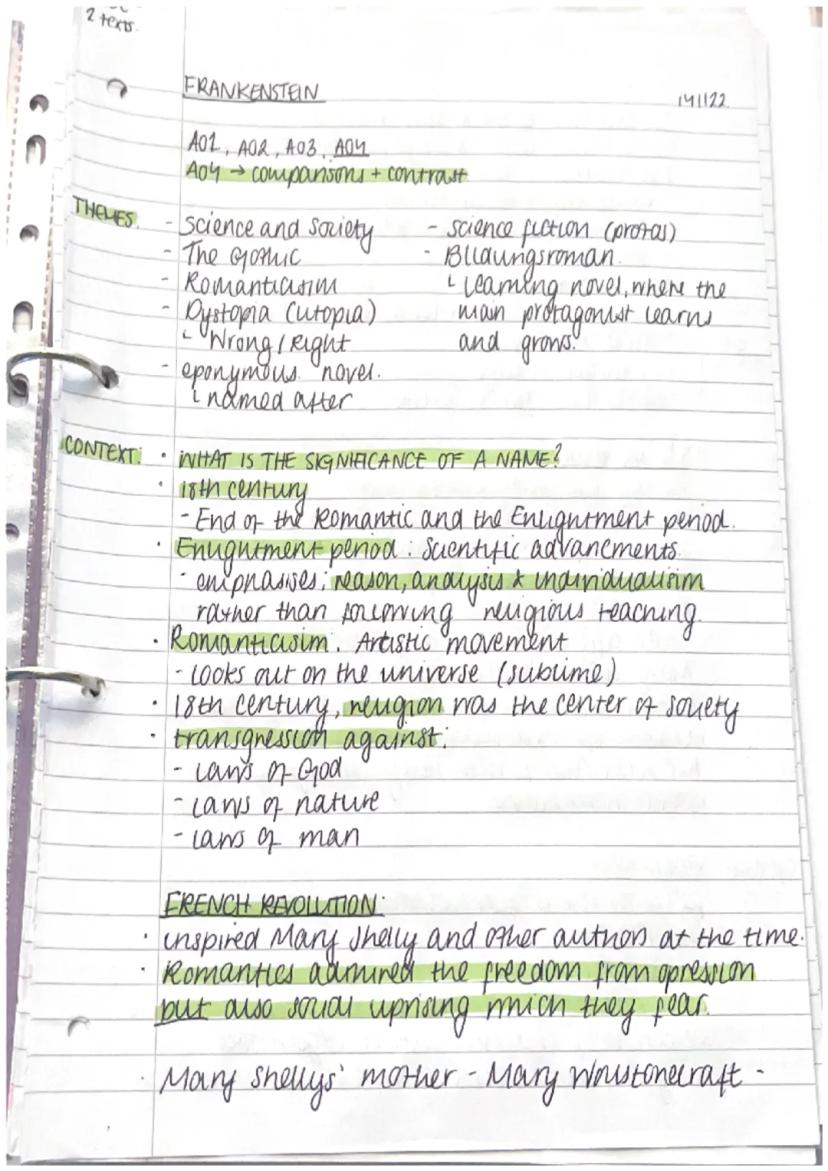 2 texts.
FRANKENSTEIN
14/1/22
A01, A02, A03, A04
A04 → comparisons + contrast
THEMES.
- Science and Society
- The Gothic
- Romanticisim
- Dystopia (utopia)
↳ Wrong/Right
- eponymous novel.
↳ named after
- science fiction (protas)
- Bildungsroman.
↳ Learning novel, where the
main protagonist learns
and grows.
CONTEXT:
• WHAT IS THE SIGNIFICANCE OF A NAME?
• 18th century
- End of the Romantic and the Enlightment period.
• Enlightment period : Scientific advancments.
- emphasises; reason, analysis & individualisim
rather than following religious teaching.
• Romanticisim. Artistic movement
- Looks out on the universe (sublime)
• 18th century, religion was the center of society
• transgression against:
- Laws of God
- Laws of nature
- Laws of man
FRENCH REVOLUTION:
• inspired Mary Shelly and other authors at the time.
• Romantics admired the freedom from opression
but also social uprising which they fear.
• Mary Shellys' mother - Mary Wollstonecraft -